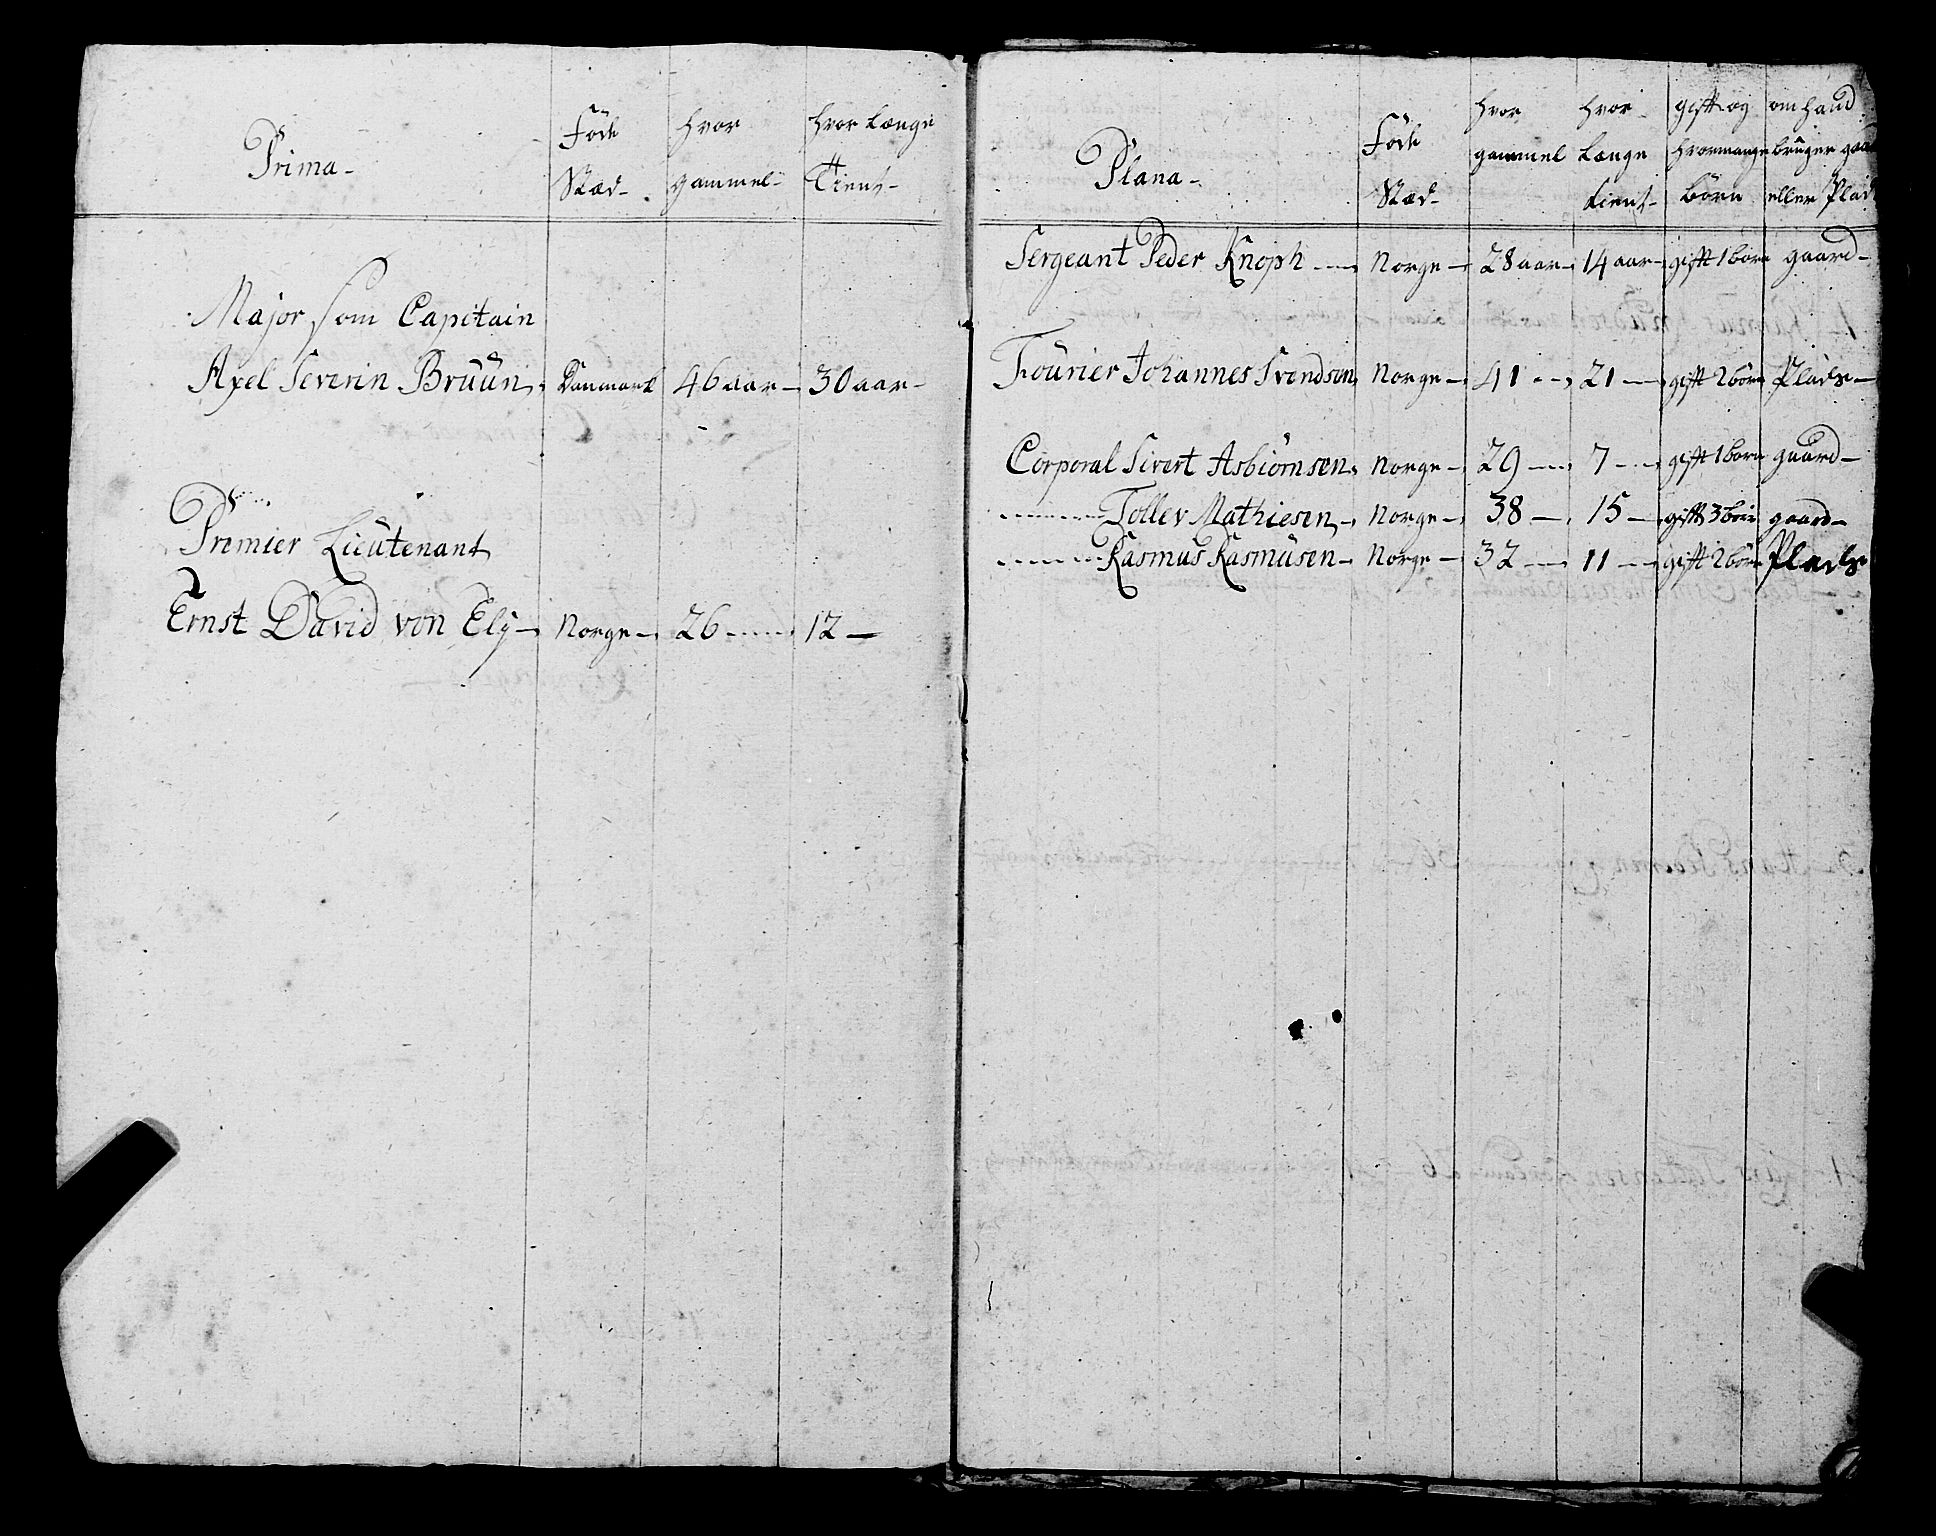 Prima-
Føde Stæd-
hvor gammel-
hvor længe Tient-
Major som Capitain
Axel Severin Bruün Danmark 46 aar- 30 aar-
Premier Lieutenant
Ernst David von Ely- Norge- 26 12-
Plana-
Føde Stæd-
hvor gammel
hvor længe tient-
gift og hvormange børn
om hand bruger gaard eller Plads
Sergeant Peder Knoph Norge- 28 aar- 14 aar- gift 1 børn gaard-
Fourier Johannes Svendsen Norge- 41 21 gift 2 børn Plads-
Corporal Sivert Asbiørnsen Norge- 29 7 gift 1 børn gaard-
Tollev Mathiesen- Norge- 38- 15- gift 3 børn gaard-
Rasmus Rasmusen- Norge- 32 11 gift 2 børn Plads